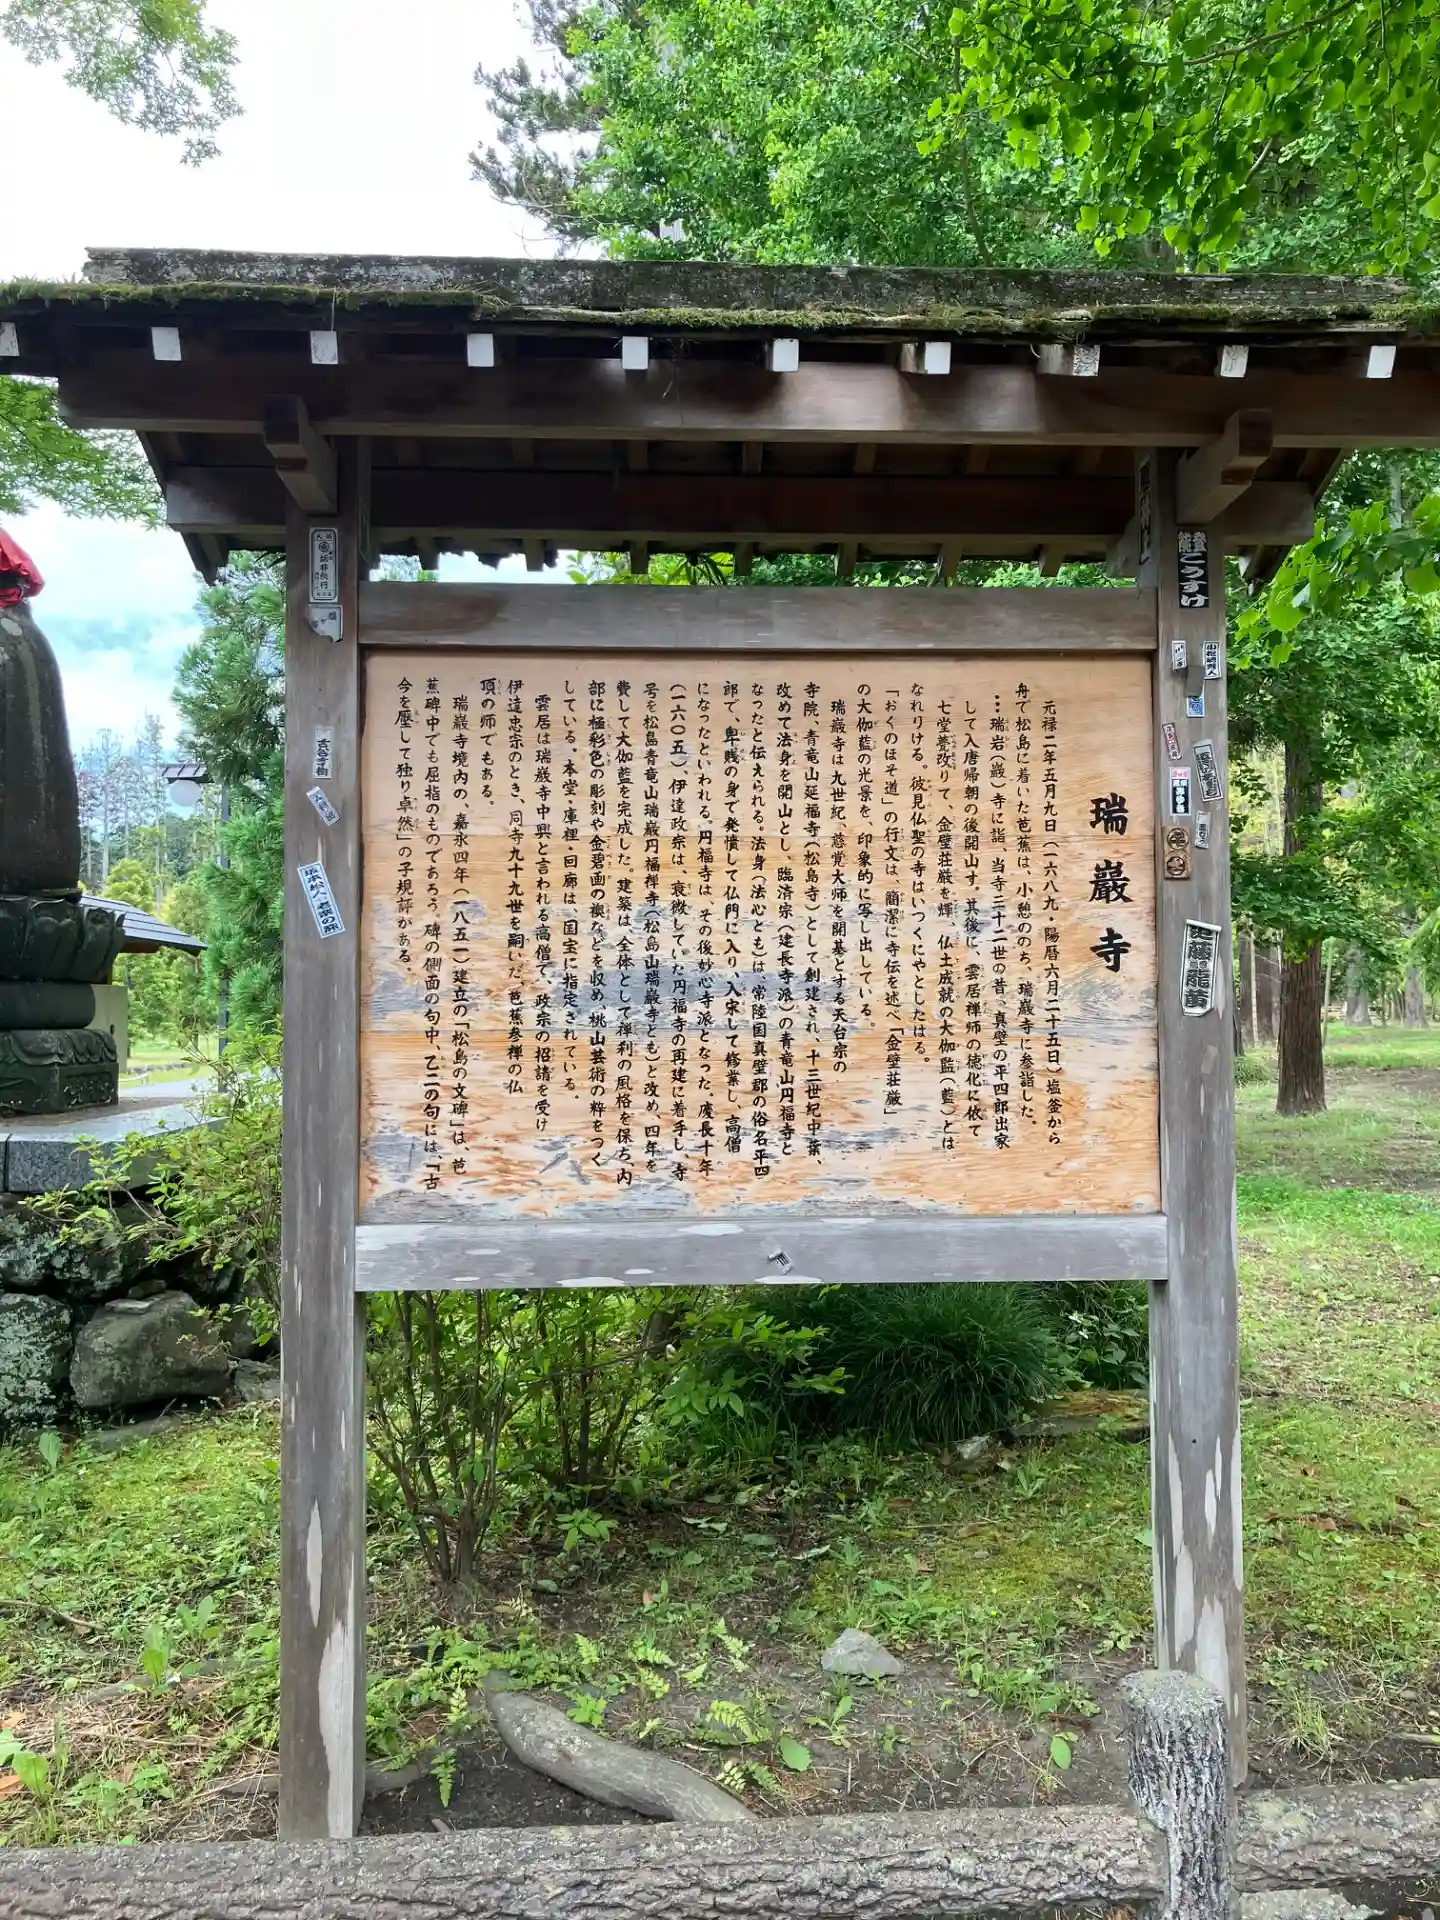 瑞巖寺
元禄二年五月九日(一六八九・陽暦六月二十五日)塩釜から
舟で松島に着いた芭蕉は、小憩ののち、瑞巌寺に参詣した。
…瑞岩(巌)寺に詣、当寺三十二世の昔、真壁の平四郎出家
して入唐帰朝の後開山す。其後に、雲居禅師の徳化に依て
七堂甍改りて、金壁荘厳を輝、仏土成就の大伽監(藍)とは
なれりける。彼見仏聖の寺はいつくにやとしたはる。
「おくのほそ道」の行文は、簡潔に寺伝を述べ「金壁荘厳」
の大伽藍の光景を、印象的に写し出している。
瑞巌寺は九世紀、慈覚大師を開基とする天台宗の
寺院、青竜山延福寺(松島寺)として創建され、十三世紀中葉、
改めて法身を開山とし、臨済宗(建長寺派)の青竜山円福寺と
なったと伝えられる。法身(法心とも)は、常陸国真壁郡の俗名平四
郎で、卑賎の身で発憤して仏門に入り、入宋して修業し、高僧
になったといわれる。円福寺は、その後妙心寺派となった。慶長十年
(一六〇五)、伊達政宗は、衰微していた円福寺の再建に着手し、寺
号を松島青竜山瑞巌円福禅寺(松島山瑞巌寺とも)と改め、四年を
費して大伽藍を完成した。建築は、全体として禅刹の風格を保ち、内
部に極彩色の彫刻や金碧画の襖などを収め、桃山芸術の粋をつく
している。本堂・庫裡・回廊は、国宝に指定されている。
雲居は瑞巌寺中興と言われる高僧で、政宗の招請を受け
伊達忠宗のとき、同寺九十九世を嗣いだ。芭蕉参禅の仏
頂の師でもある。
瑞巌寺境内の、嘉永四年(一八五一)建立の「松島の文碑」は、芭
蕉碑中でも屈指のものであろう。碑の側面の句中、乙二の句には、「古
今を壓して独り卓然」の子規評がある。
こうすけ
坂本松八 老楽の旅